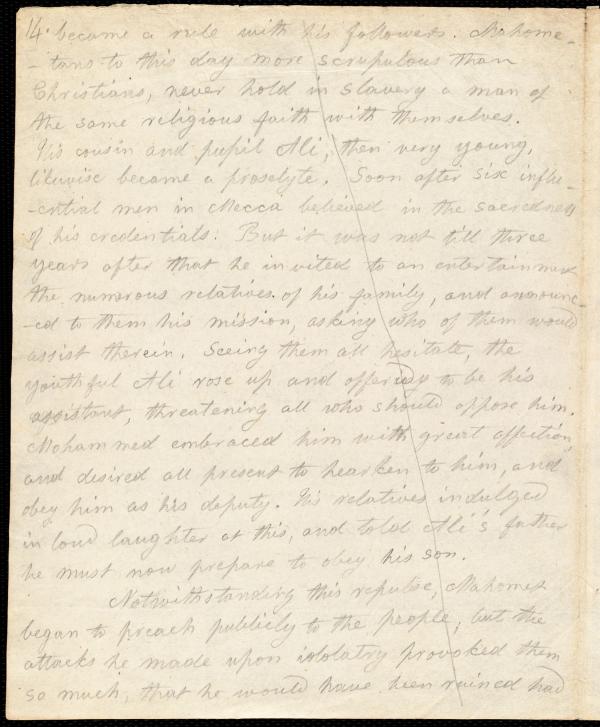 14. became a rule with his followers. Mahome-
-tans to this day more scrupulous than
Christians, never hold in slavery a man of
the same religious faith with themselves.
His cousin and pupil Ali, then very young,
likewise became a proselyte. Soon after six influ-
-ential men in Mecca believed in the sacredness
of his credentials. But it was not till three
years after that he invited to an entertainment
the numerous relatives of his family, and announc-
-ed to them his mission, asking who of them would
assist therein. Seeing them all hesitate, the
youthful Ali rose up and offered to be his
assistant, threatening all who should oppose him.
Mohammed embraced him with great affection,
and desired all present to hearken to him, and
obey him as his deputy. His relatives indulged
in loud laughter at this, and told Ali's father
he must now prepare to obey his son.
Notwithstanding this repulse, Mahomet
began to preach publicly to the people; but the
attacks he made upon idolatry provoked them
so much, that he would have been ruined had